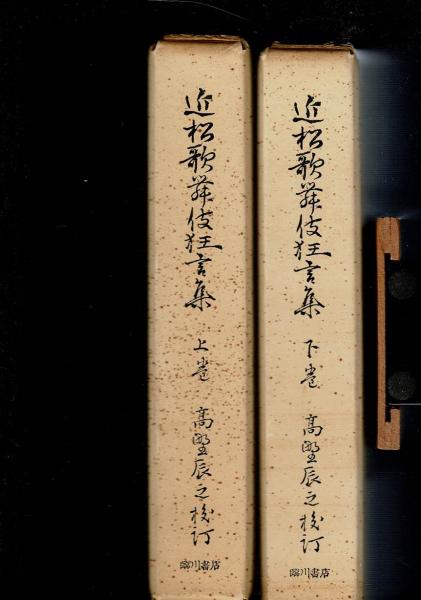 近松歌舞伎狂言集 上巻 高野辰之校訂
臨川書店
近松歌舞伎狂言集 下巻 高野辰之校訂
臨川書店